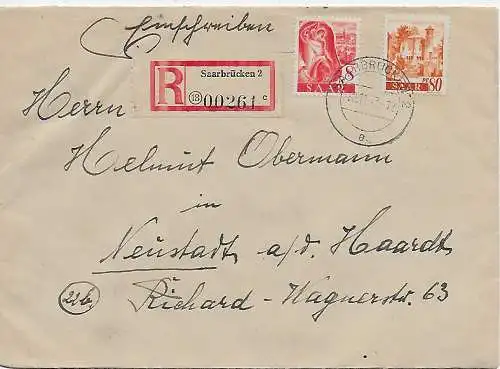 Einschreiben
R
Saarbrücken 2
(13) 00261 c
8 SAAR
SAAR PF 80
SAARBRÜCKEN
Herrn
Helmut Obermann
in
Neustadt a/d. Haardt
22b
Richard-Wagnerstr. 63